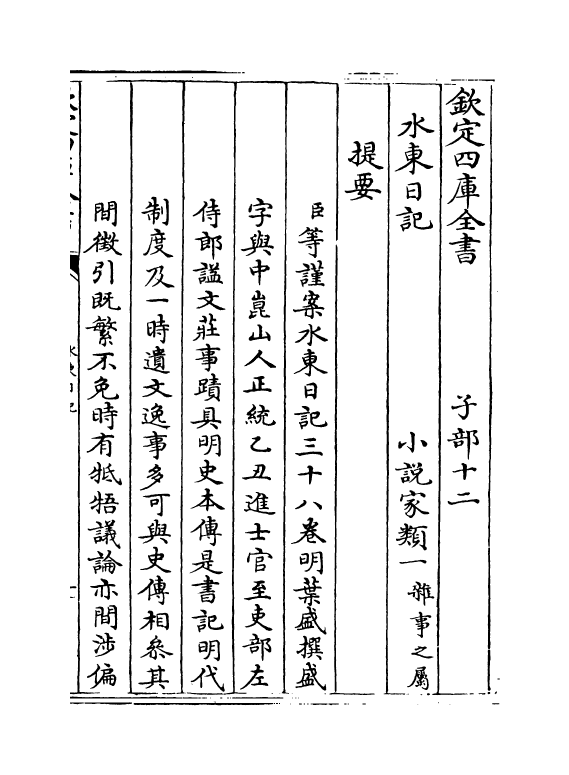 欽定四庫全書　子部十二
水東日記　小說家類一雜事之屬
提要
臣等謹案水東日記三十八卷明葉盛撰盛
字與中崑山人正統乙丑進士官至吏部左
侍郎諡文莊事蹟具明史本傳是書記明代
制度及一時遺文逸事多可與史傳相叅其
間徵引既繁不免時有牴牾議論亦間涉偏
水東日記